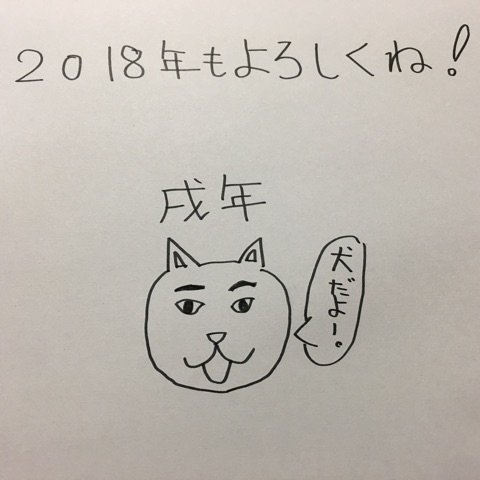 2018年もよろしくね!
戌年
犬だよー。